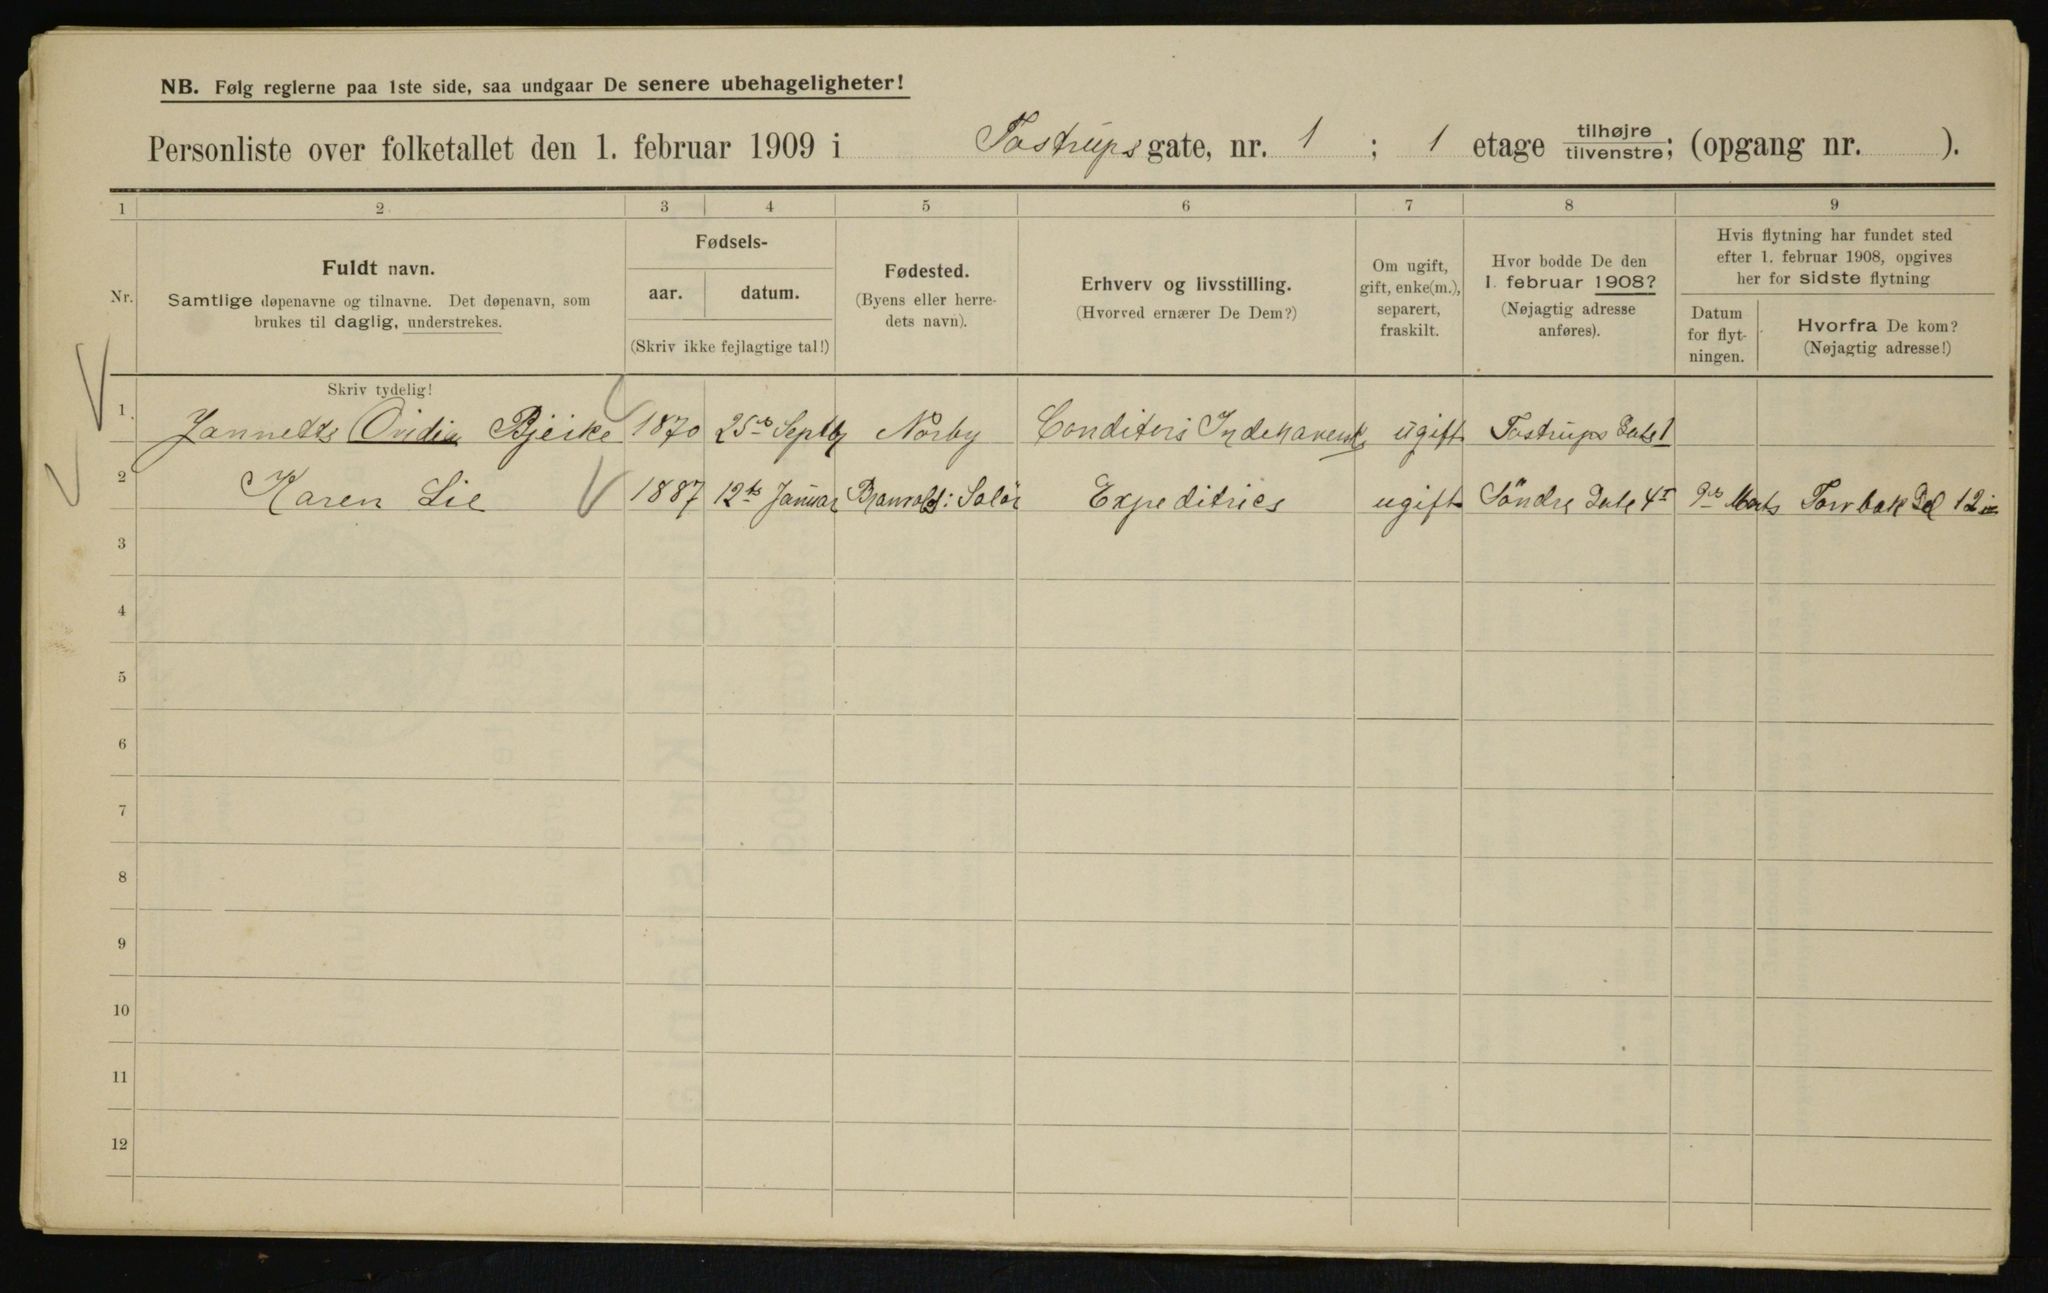 NB. Følg reglerne paa 1ste side, saa undgaar De senere ubehageligheter!
Personliste over folketallet den 1. februar 1909 i Tostrups gate, nr. 1 ; 1 etage tilhøjre/tilvenstre; (opgang nr. ).
1 2 3 4 5 6 7 8 9
Nr.
Fuldt navn.
Samtlige døpenavne og tilnavne. Det døpenavn, som
brukes til daglig, understrekes.
Skriv tydelig!
Fødsels-
aar. datum.
(Skriv ikke fejlagtige tal!)
Fødested.
(Byens eller herre-
dets navn).
Erhverv og livsstilling.
(Hvorved ernærer De Dem?)
Om ugift,
gift, enke(m.),
separert,
fraskilt.
Hvor bodde De den
1. februar 1908?
(Nøjagtig adresse
anføres).
Hvis flytning har fundet sted
efter 1. februar 1908, opgives
her for sidste flytning
Datum
for flyt-
ningen.
Hvorfra De kom?
(Nøjagtig adresse!)
1. Jannette Ovidia Bjerke 1870 25de Septbr Norby Conditori Indehaverske ugift Tostrups Gate 1
2 Karen Lie 1887 12te Januar Solør Expeditrice ugift Søndre Gate 4 I 9de Marts Torvbak Gd 12
3
4
5
6
7
8
9
10
11
12